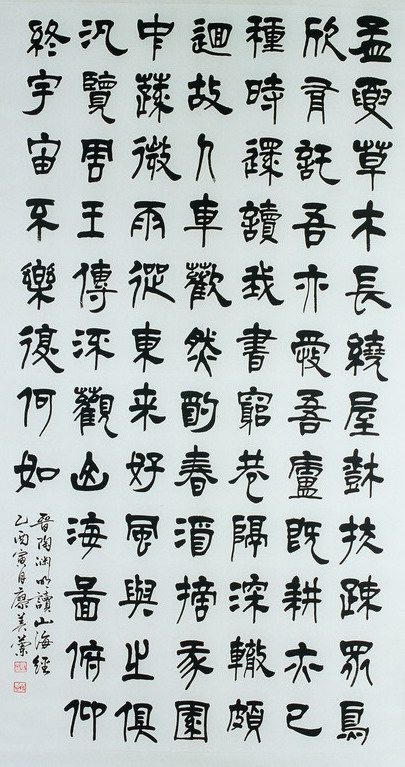 孟夏草木長繞屋樹扶疎眾鳥
欣有託吾亦愛吾廬既耕亦已
種時還讀我書窮巷隔深轍頗
迴故人車歡然酌春酒摘我園
中蔬微雨從東来好風與之俱
汎覽周王傳流觀山海圖俯仰
終宇宙不樂復何如
晉陶渊明讀山海經
乙酉寅月廖美